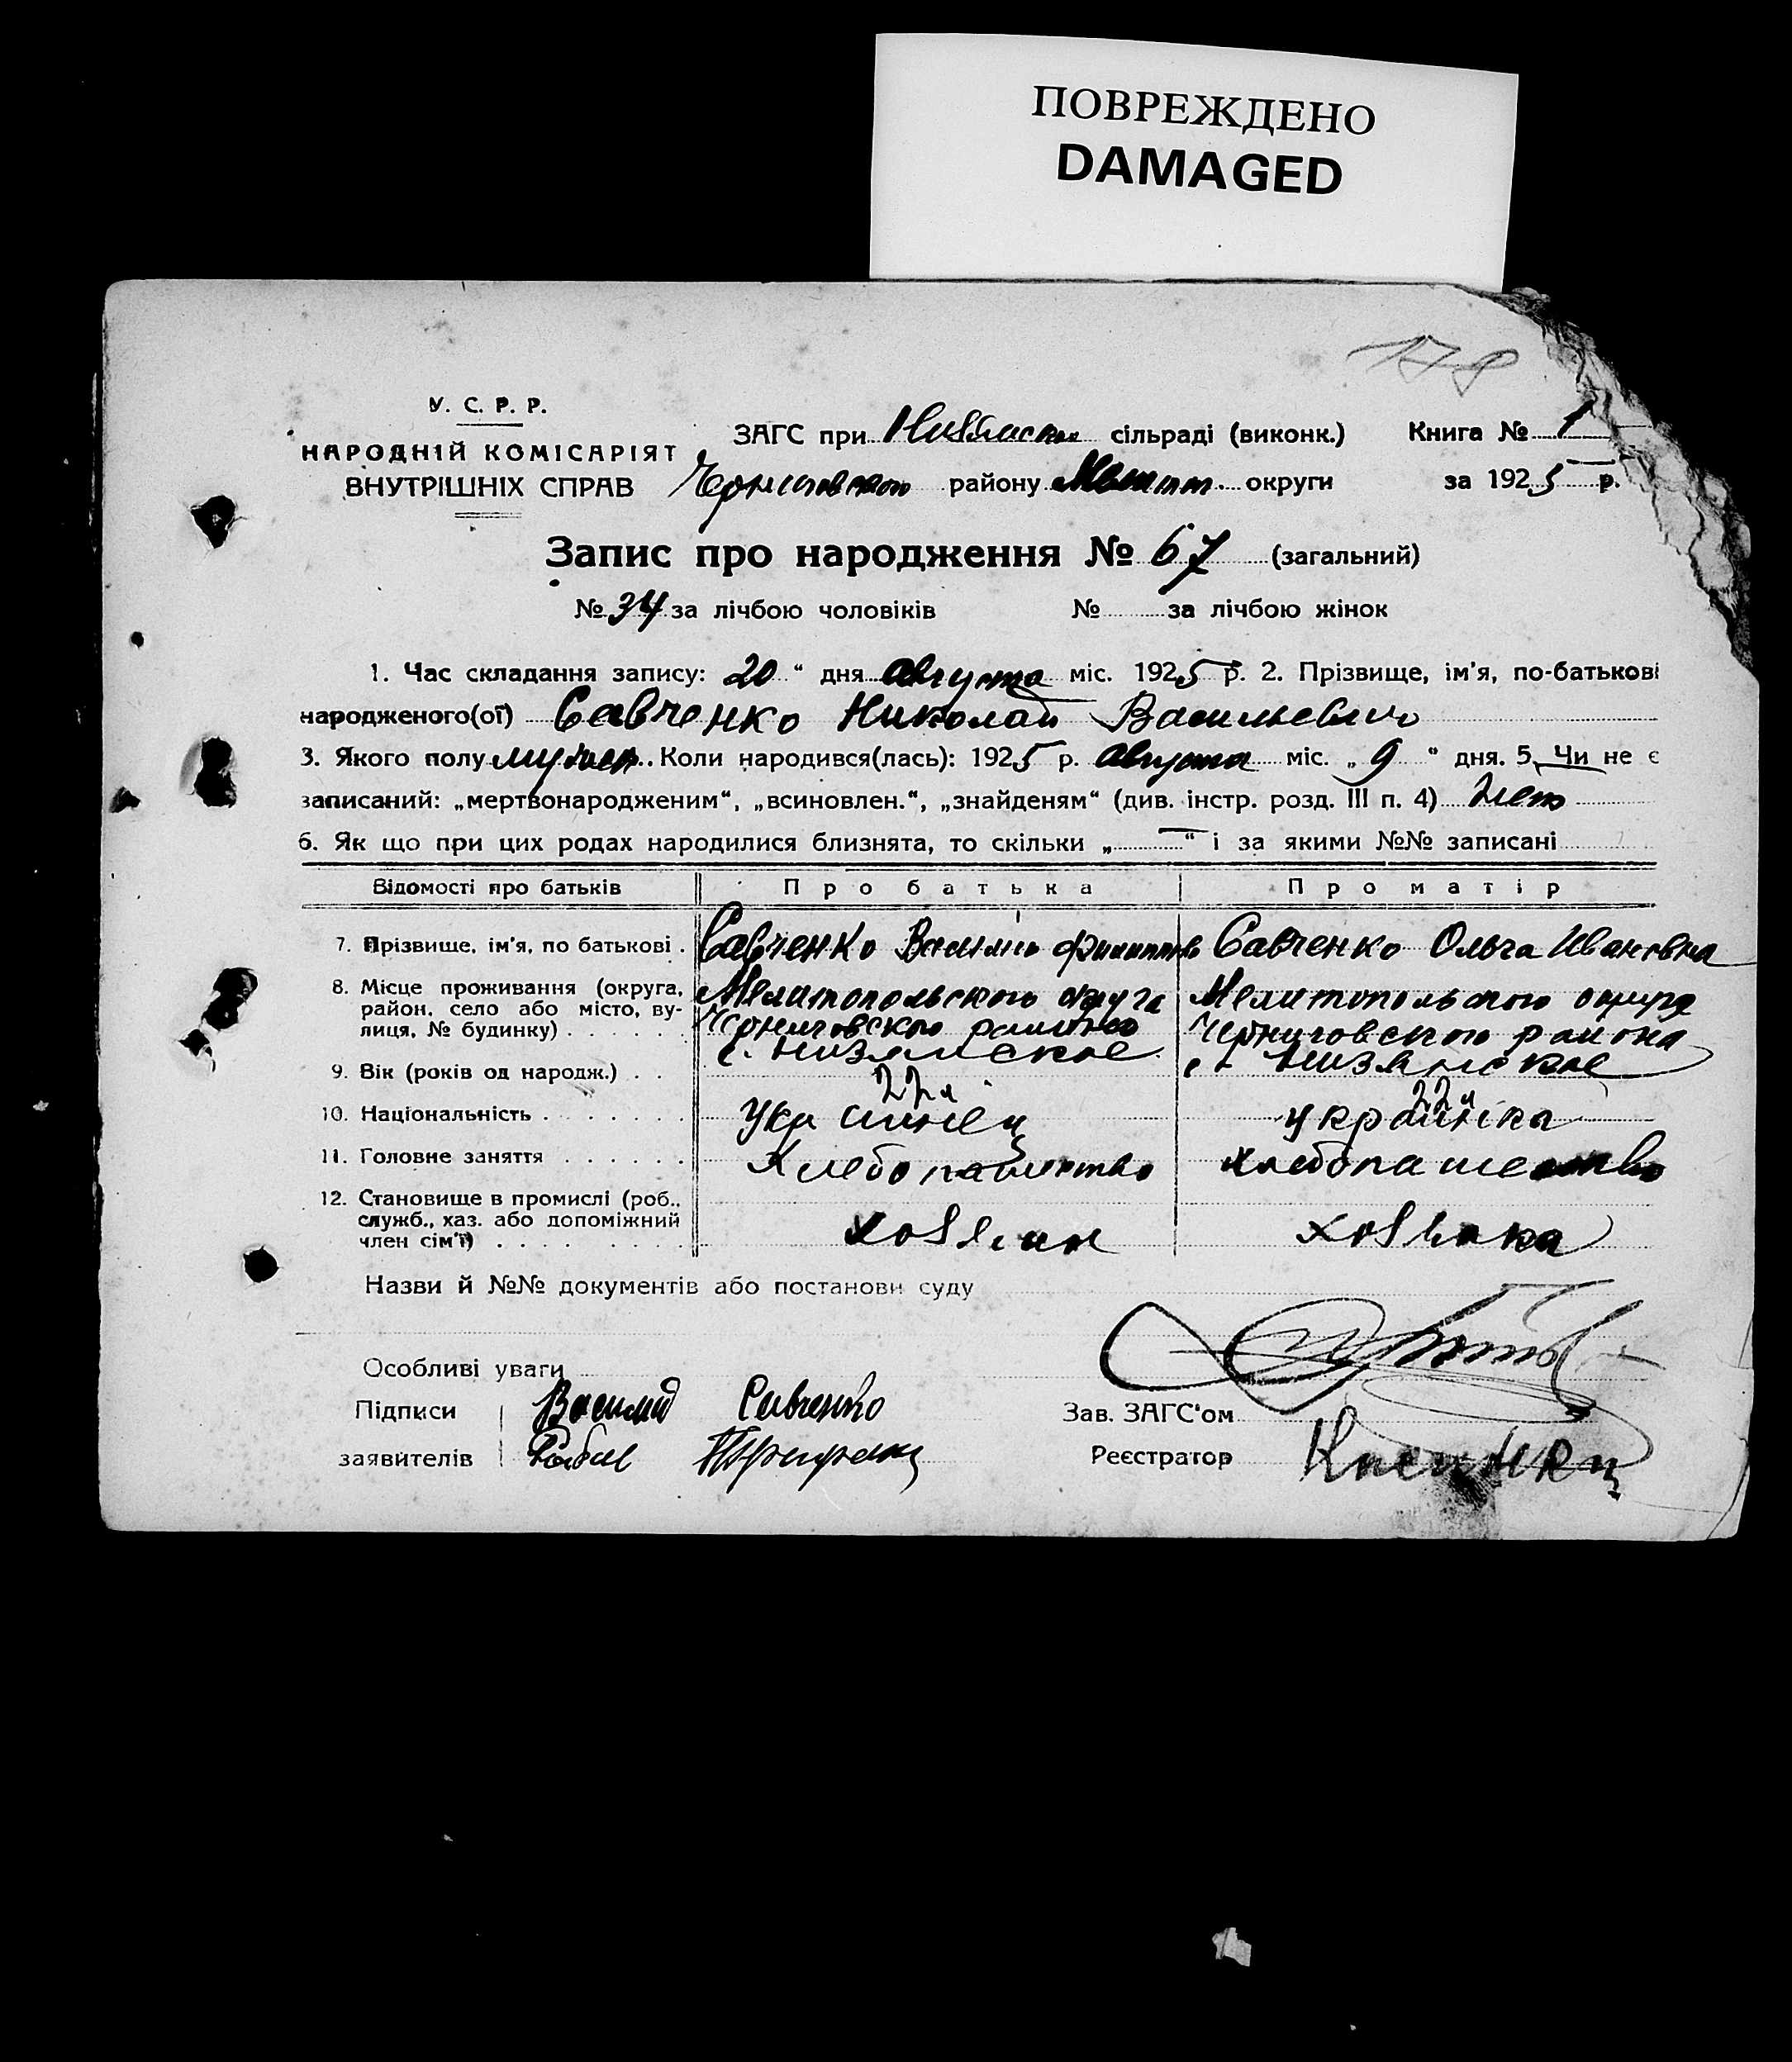 ПОВРЕЖДЕНО
DAMAGED
178
У. С. Р. Р.
НАРОДНІЙ КОМІСАРІЯТ
ВНУТРІШНІХ СПРАВ
ЗАГС при сільраді (виконк.) Книга № 1
Черниговского району Мелитоп. округи за 1925 р.
Запис про народження № 67 (загальний)
№ 34 за лічбою чоловіків № за лічбою жінок
1. Час складання запису: 20 “ дня августа міс. 1925 р. 2. Прізвище, ім'я, по-батькові
народженого(ої) Савченко Николай Васильевич
3. Якого полу мужск. Коли народився(лась): 1925 р. августа міс. „ 9 “ дня. 5. Чи не є
записаний: „мертвонародженим“, „всиновлен.“, „знайденям“ (див. інстр. розд. III п. 4) нет
6. Як що при цих родах народилися близнята, то скільки „ — “ і за якими №№ записані
Відомості про батьків Про батька Про матір
7. Прізвище, ім'я, по батькові . Савченко Василий Филиппов Савченко Ольга Ивановна
8. Місце проживання (округа, район, село або місто, вулиця, № будинку) Мелитопольского округа Мелитопольского округа
Черниговского района Черниговского района
с. Низянское с. Низянское
9. Вік (років од народж.) . . 22л 22л
10. Національність Украинец українка
11. Головне заняття Хлебопашество хлебопашество
12. Становище в промислі (роб., служб., хаз. або допоміжний член сім'ї) хозяин хозяйка
Назви й №№ документів або постанови суду
Особливі уваги
Підписи Василий Савченко Зав. ЗАГС'ом
заявителів Реєстратор